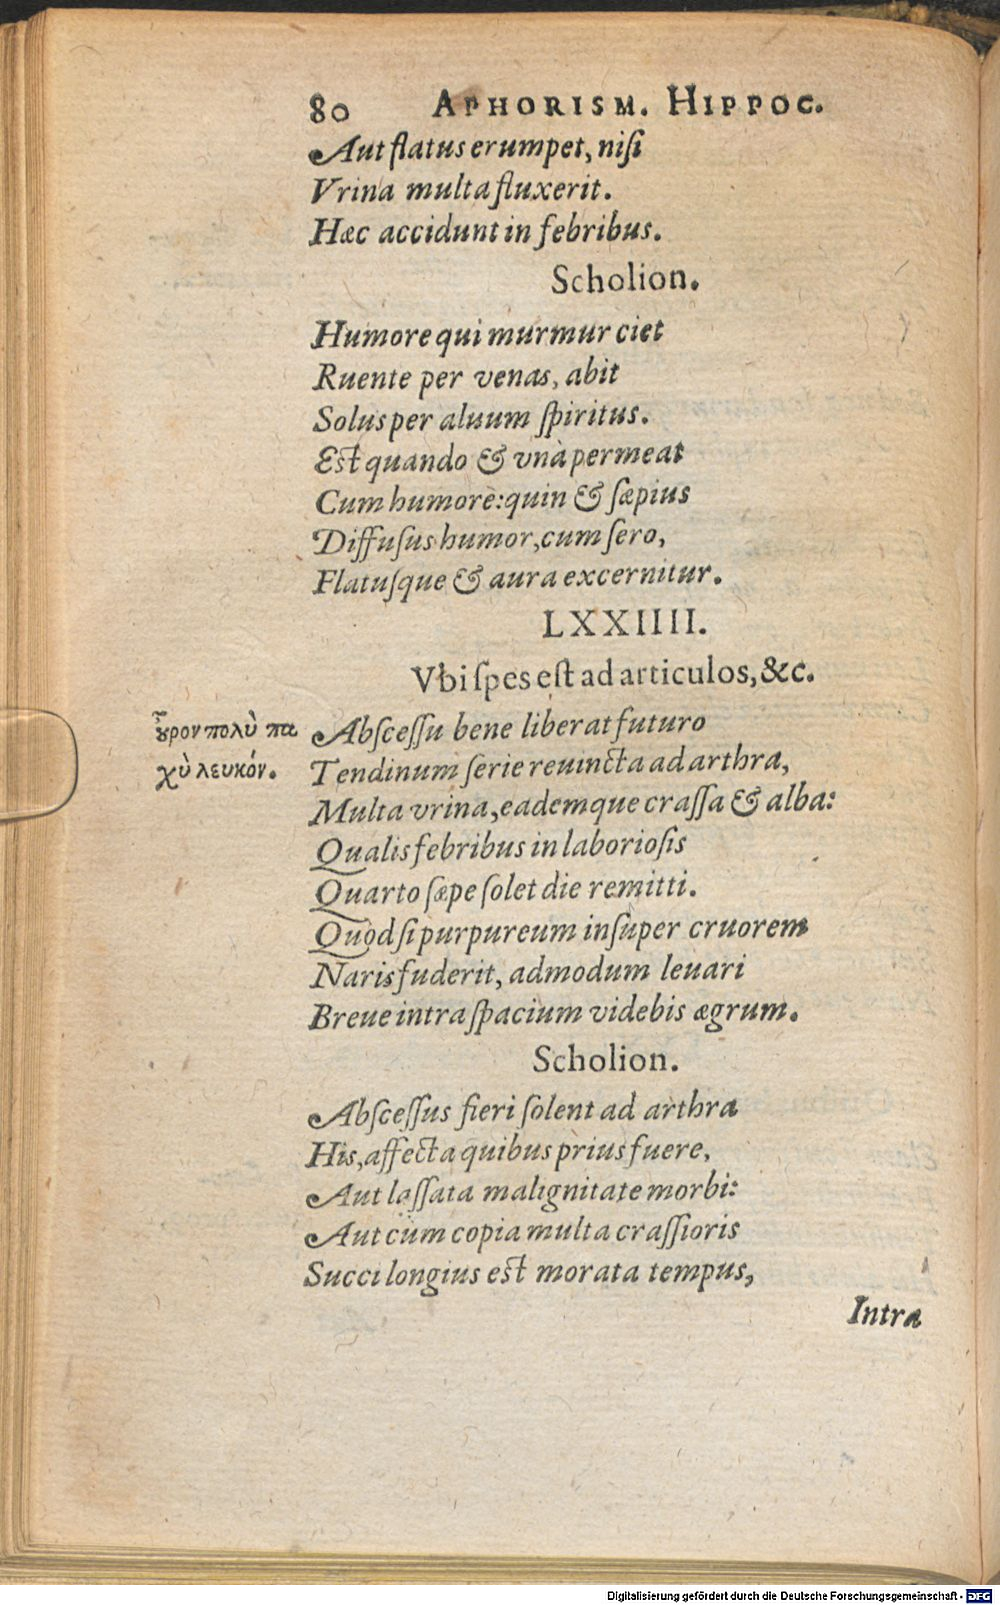 80 APHORISM. HIPPOC.
Aut flatus erumpet, niſi
Vrina multa fluxerit.
Hæc accidunt in febribus.
Scholion.
Humore qui murmur ciet
Ruente per venas, abit
Solus per aluum ſpiritus.
Eſt quando & vnà permeat
Cum humore: quin & ſæpius
Diffuſus humor, cum ſero,
Flatuſque & aura excernitur.
LXXIIII.
Vbi ſpes eſt ad articulos, &c.
Abſceſſu bene liberat futuro
ȣ̓͂ρον πολὺ πα
Tendinum ſerie reuincta ad arthra,
χὺ λευκόν.
Multa vrina, eademque craſſa & alba:
Qualis febribus in laborioſis
Quarto ſæpe ſolet die remitti.
Quòd ſi purpureum inſuper cruorem
Naris fuderit, admodum leuari
Breue intra ſpacium videbis ægrum.
Scholion.
Abſceſſus fieri ſolent ad arthra
His, affecta quibus prius fuere,
Aut laſſata malignitate morbi:
Aut cùm copia multa craſſioris
Succi longius eſt morata tempus,
Intra
Digitalisierung gefördert durch die Deutsche Forschungsgemeinschaft - DFG